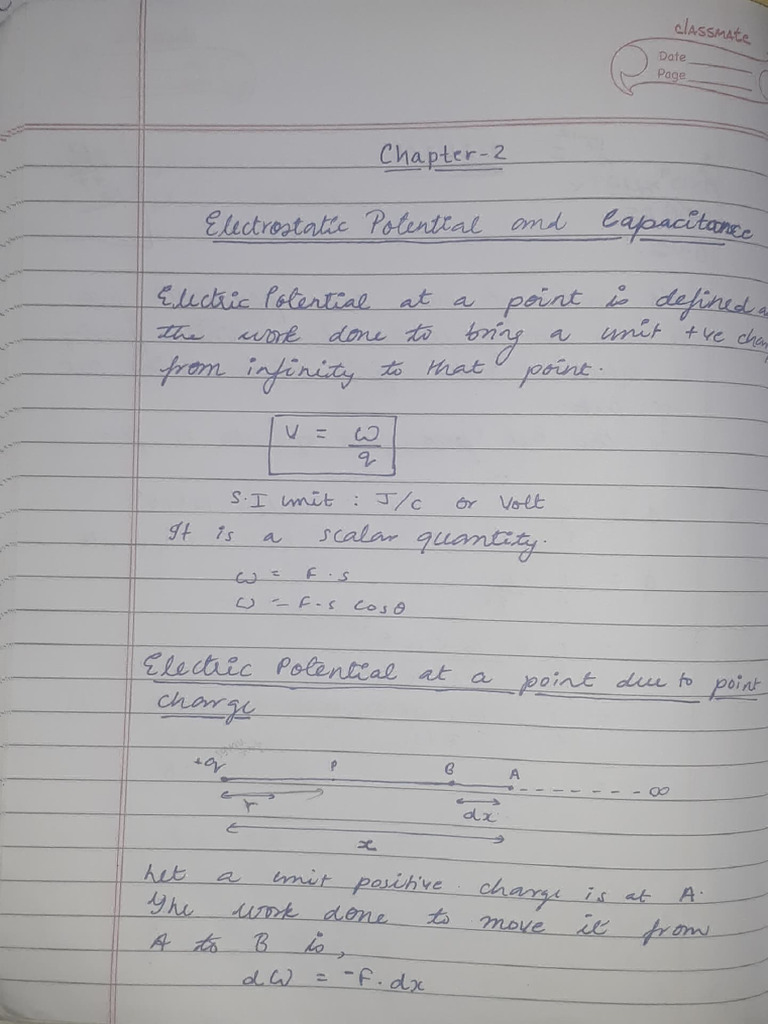 classmate
Date
Page
Chapter-2
Electrostatic Potential and Capacitance
Electric Potential at a point is defined
the work done to bring a unit +ve
from infinity to that point.
V = ω/q
S.I unit : J/C or Volt
It is a scalar quantity.
ω = F.s
ω = F.s cosθ
Electric Potential at a point due to point
charge
+q P B A ∞
r dx
x
Let a unit positive charge is at A.
The work done to move it from
A to B is,
dω = -F.dx